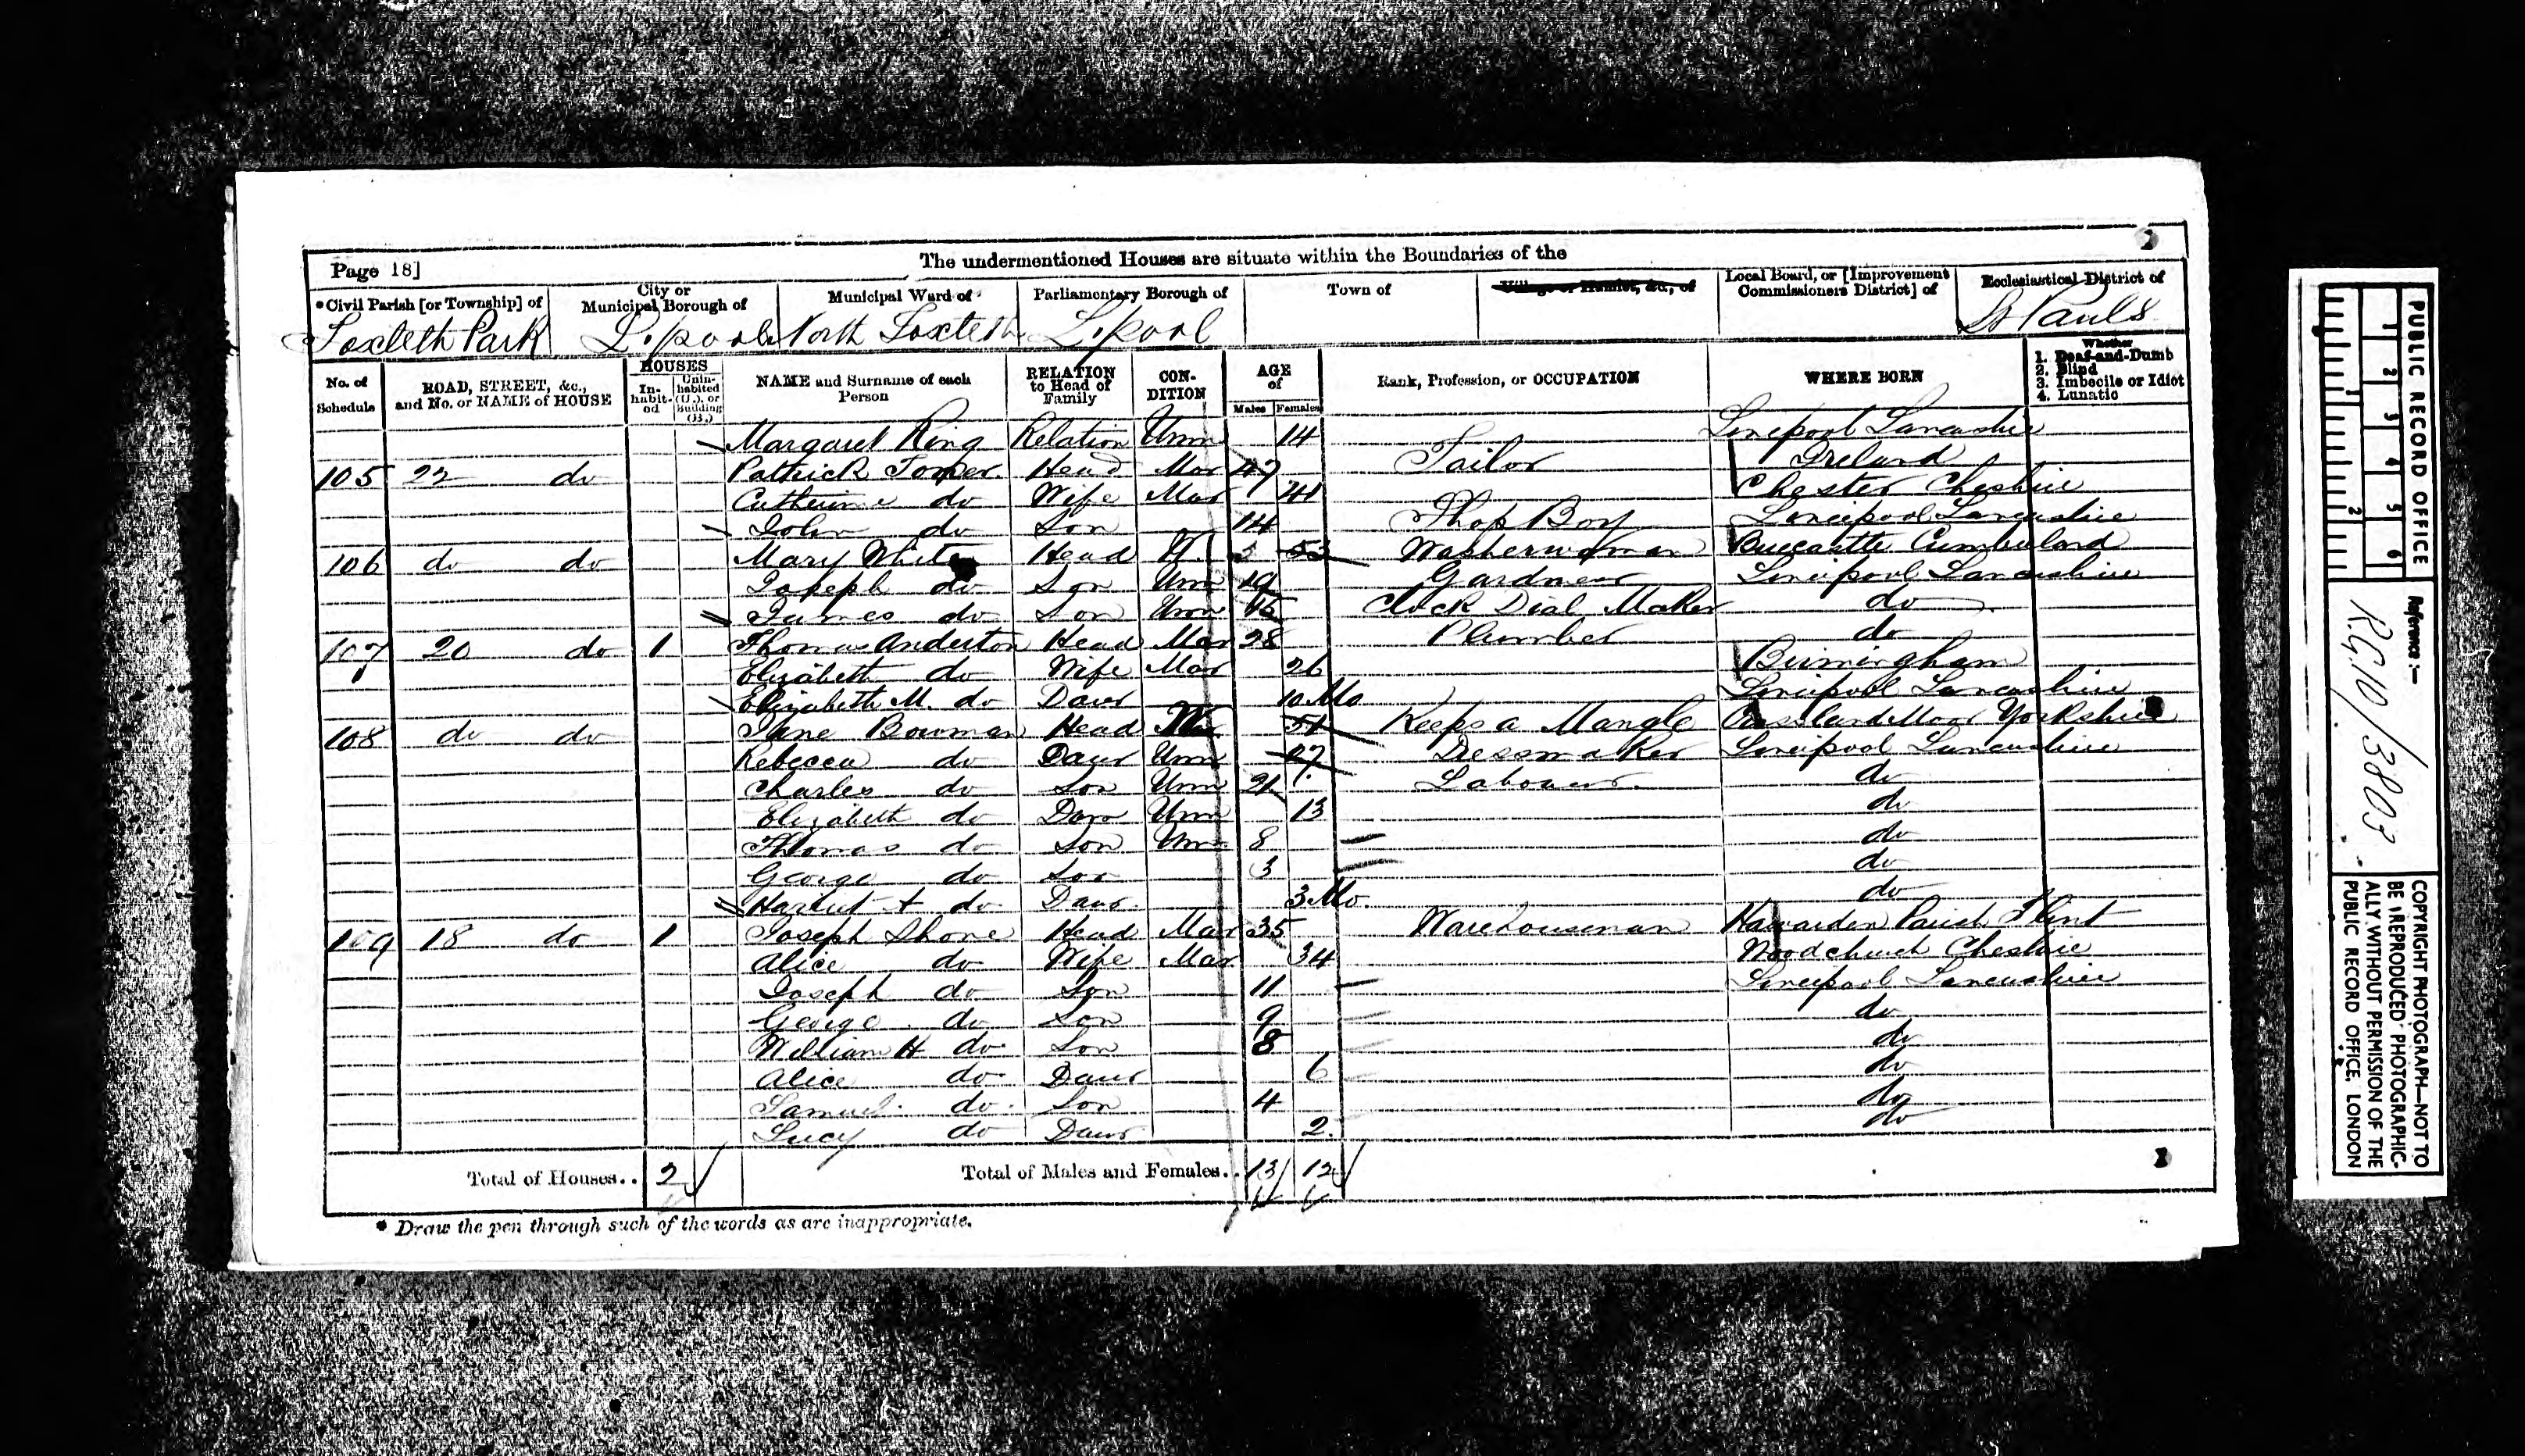 The undermentioned Houses are situate within the Boundaries of the
Page 18]
*Civil Parish [or Township] of City or Municipal Borough of Municipal Ward of Parliamentary Borough of Town of Village or Hamlet, &c., of Local Board, or [Improvement Commissioners District] of Ecclesiastical District of
Toxteth Park L.pool North Toxteth L.pool St Pauls
No. of Schedule ROAD, STREET, &c., and No. or NAME of HOUSE HOUSES In-habit-ed Unin-habited (U.), or Building (B.) NAME and Surname of each Person RELATION to Head of Family CON-DITION AGE of Males Females Rank, Profession, or OCCUPATION WHERE BORN Whether 1. Deaf-and-Dumb 2. Blind 3. Imbecile or Idiot 4. Lunatic
Margaret King Relation Unm 14 Liverpool Lancashire
105 22 do Patrick Head Mar 47 Tailor Ireland
Catherine do Wife Mar 41 Chester Cheshire
John do Son 14 Shop Boy Liverpool Lancashire
106 do do Mary White Head W. 53 Washerwoman Cumberland
Joseph do Son Unm 19 Gardner Liverpool Lancashire
James do Son Unm Clock Dial Maker do
107 20 do 1 Thomas Anderton Head Mar 28 Plumber do
Elizabeth do Wife Mar 26 Birmingham
Elizabeth M. do Daur 10 Mo Liverpool Lancashire
108 do do Jane Bowman Head 51 Keeps a Mangle Yorkshire
Rebecca do Daur Unm 27 Dressmaker Liverpool Lancashire
Charles do Son Unm 21 Labourer do
Elizabeth do Daur Unm 13 do
Thomas do Son Unm 8 do
George do Son 3 do
Harriet A do Daur. 3 Mo. do
109 18 do 1 Joseph Shone Head Mar 35 Warehouseman Hawarden Parish Flint
Alice do Wife Mar 34 Woodchurch Cheshire
Joseph do Son 11 Liverpool Lancashire
George do Son 9 do
William H do Son 8 do
Alice do Daur 6 do
Samuel do Son 4 do
Lucy do Daur 2 do
Total of Houses.. 2 Total of Males and Females.. 13 12
* Draw the pen through such of the words as are inappropriate.
PUBLIC RECORD OFFICE
1 2 3 4 5 6
1 2
Reference:-
R.G. 10/3803
COPYRIGHT PHOTOGRAPH—NOT TO BE REPRODUCED PHOTOGRAPHIC-ALLY WITHOUT PERMISSION OF THE PUBLIC RECORD OFFICE, LONDON